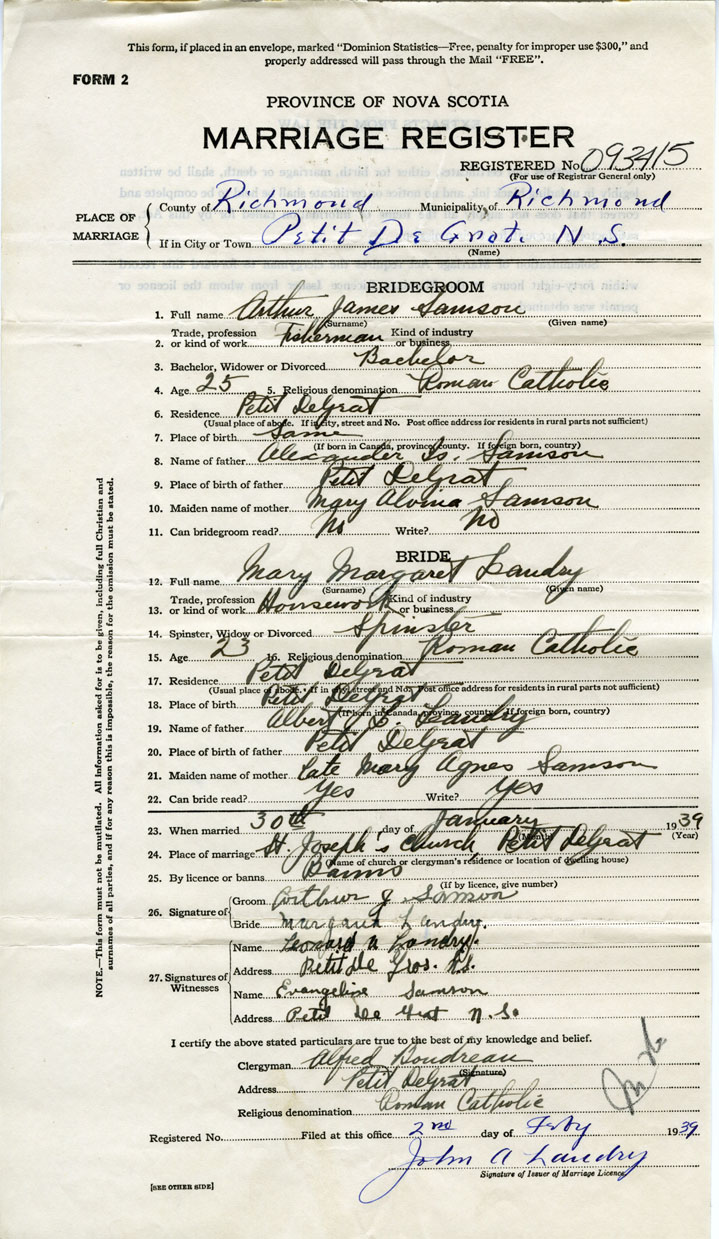 This form, if placed in an envelope, marked "Dominion Statistics—Free, penalty for improper use $300," and
properly addressed will pass through the Mail "FREE".
FORM 2
PROVINCE OF NOVA SCOTIA
MARRIAGE REGISTER
REGISTERED No 093415
(For use of Registrar General only)
PLACE OF MARRIAGE
County of Richmond Municipality of Richmond
If in City or Town Petit De Grat. N.S.
(Name)
BRIDEGROOM
1. Full name Arthur James Samson
(Surname) (Given name)
2. Trade, profession or kind of work Fisherman Kind of industry or business
3. Bachelor, Widower or Divorced Bachelor
4. Age 25 5. Religious denomination Roman Catholic
6. Residence Petit DeGrat
(Usual place of abode. If in city, street and No. Post office address for residents in rural parts not sufficient)
7. Place of birth Same
(If born in Canada, province, county. If foreign born, country)
8. Name of father Alexander Samson
9. Place of birth of father Petit DeGrat
10. Maiden name of mother Mary Alvina Samson
11. Can bridegroom read? No Write? No
BRIDE
12. Full name Mary Margaret Landry
(Surname) (Given name)
13. Trade, profession or kind of work Housework Kind of industry or business
14. Spinster, Widow or Divorced Spinster
15. Age 23 16. Religious denomination Roman Catholic
17. Residence Petit DeGrat
(Usual place of abode. If in city, street and No. Post office address for residents in rural parts not sufficient)
18. Place of birth Petit DeGrat
(If born in Canada, province, county. If foreign born, country)
19. Name of father Albert Landry
20. Place of birth of father Petit DeGrat
21. Maiden name of mother Late Mary Agnes Samson
22. Can bride read? Yes Write? Yes
23. When married 30th day of January 1939
(Month) (Year)
24. Place of marriage St. Joseph's Church, Petit DeGrat
(Name of church or clergyman's residence or location of dwelling house)
25. By licence or banns Banns
(If by licence, give number)
26. Signature of
Groom Arthur J Samson
Bride Margaret Landry.
27. Signatures of Witnesses
Name Leonard A Landry.
Address Petit De Gros. N.S.
Name Evangeline Samson
Address Petit De Grat N.S.
I certify the above stated particulars are true to the best of my knowledge and belief.
Clergyman Alfred Boudreau
(Signature)
Address Petit DeGrat
Religious denomination Roman Catholic
Registered No. Filed at this office 2nd day of Feby 1939
John A Landry
Signature of Issuer of Marriage Licence
[SEE OTHER SIDE]
NOTE.—This form must not be mutilated. All Information asked for is to be given, including full Christian and
surnames of all parties, and if for any reason this is impossible, the reason for the omission must be stated.